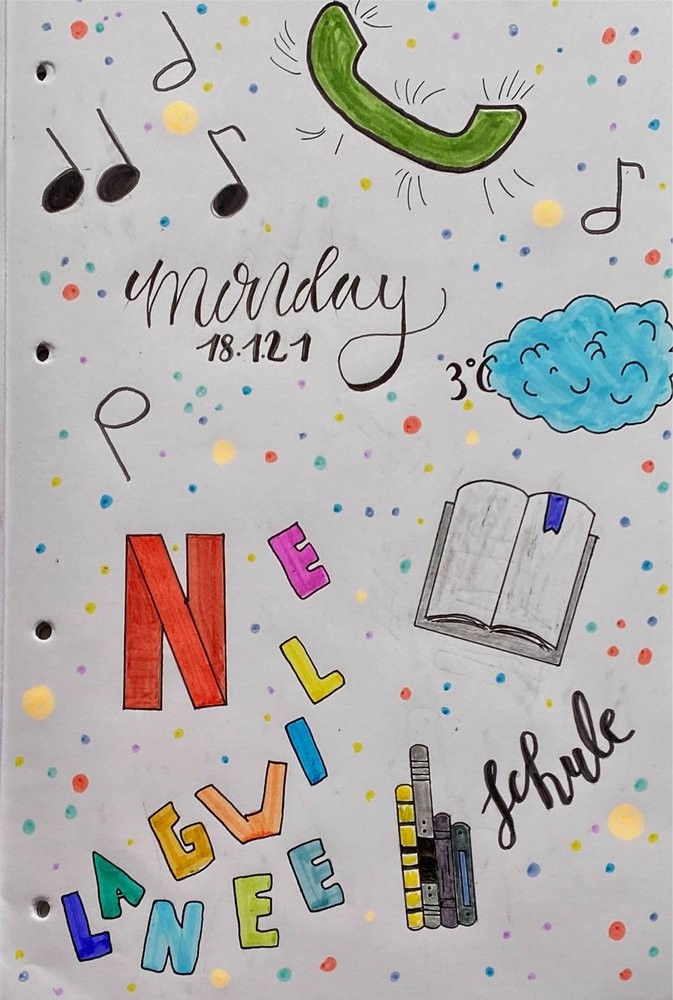 monday
18.1.21
3°C
N
LANGEWEILE
Schule